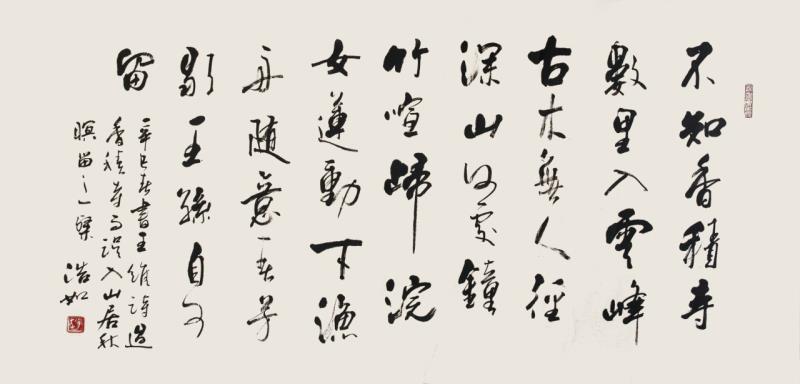 不知香積寺
數里入雲峰
古木無人徑
深山何處鐘
竹喧歸浣
女蓮動下漁
舟随意春芳
歇王孫自可
留
辛巳春書王維詩過
香積寺而誤入山居秋
暝留之一樂
浩如